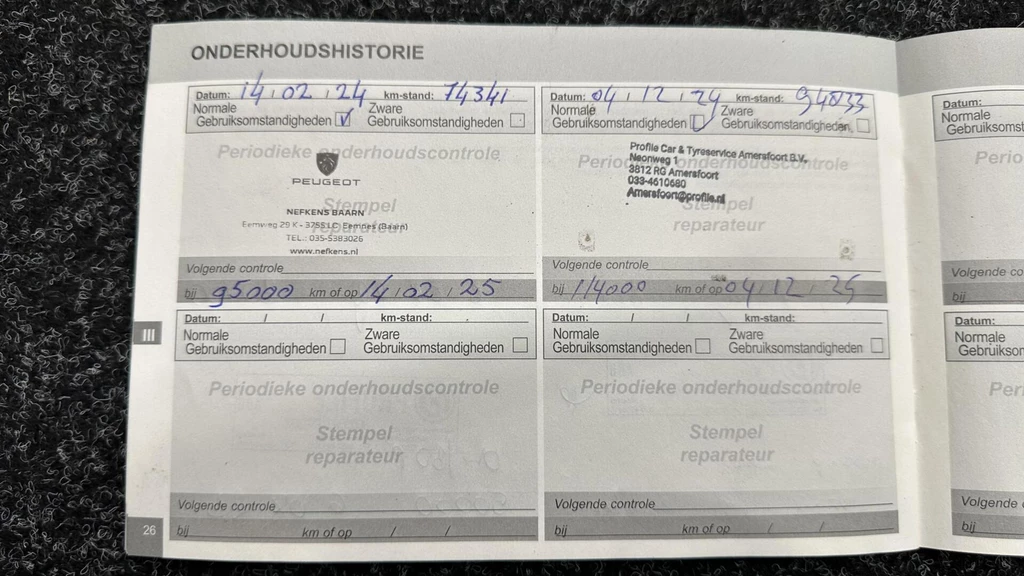 ONDERHOUDSHISTORIE
Datum: 14 / 02 / 24 km-stand: 74341
Normale Zware
Gebruiksomstandigheden Gebruiksomstandigheden
Periodieke onderhoudscontrole
PEUGEOT
Stempel
reparateur
NEFKENS BAARN
Eemweg 29 K - 3755 LC Eemnes (Baarn)
TEL.: 035-5383026
www.nefkens.nl
Volgende controle
bij 95000 km of op 14 / 02 / 25
Datum: 04 / 12 / 24 km-stand:
Normale Zware
Gebruiksomstandigheden Gebruiksomstandigheden
Periodieke onderhoudscontrole
Profile Car & Tyreservice Amersfoort B.V.
Neonweg 1
3812 RG Amersfoort
033-4610680
Amersfoort@profile.nl
Stempel
reparateur
Volgende controle
bij 114000 km of op 04 / 12 / 25
III
Datum: / / km-stand:
Normale Zware
Gebruiksomstandigheden Gebruiksomstandigheden
Periodieke onderhoudscontrole
Stempel
reparateur
Volgende controle
bij km of op / /
Datum: / / km-stand:
Normale Zware
Gebruiksomstandigheden Gebruiksomstandigheden
Periodieke onderhoudscontrole
Stempel
reparateur
Volgende controle
bij km of op / /
26
Datum:
Normale
Gebruiksomst
Perio
Volgende co
bij
Datum:
Normale
Gebruiksom
Per
Volgende
bij